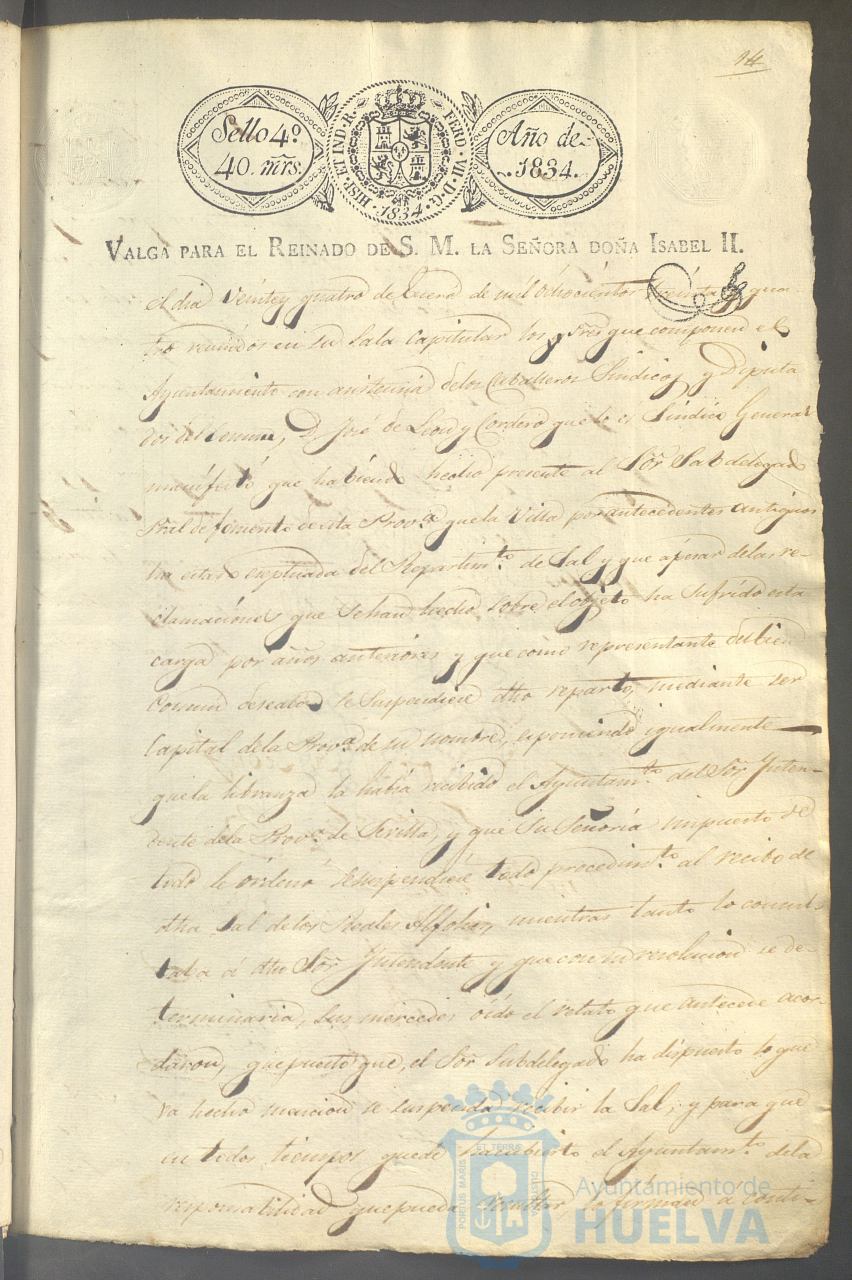 14
Sello 4º
40. mrs.
HISP. ET IND. R. FERD. VII. D. G. 1834
Año de
1834.
VALGA PARA EL REINADO DE S. M. LA SEÑORA DOÑA ISABEL II.
el dia veinte y quatro de Enero de mil ochocientos treinta y qua-
tro reunidos en su Sala Capitular los Sres que componen el
Ayuntamiento con asistencia delos Caballeros Sindicos y Diputa
dos del Comun, D. José de Leon y Cordero que lo es Sindico General
manifestó que habiendo hecho presente al Sor Subdelegado
Pral de fomento de esta Provª que la Villa por antecedentes antiguos
ha estado eseptuada del Repartimto de Sal y que apesar delas re-
clamaciones que se han hecho sobre el objeto ha sufrido esta
carga por años anteriores y que como representante del bien
Comun deseaba se suspendiese dho reparto, mediante ser
Capital dela Provª de su nombre, esponiendo igualmente
que la libranza la había recibido el Ayuntamto del Sor Inten-
dente dela Provª de Sevilla, y que Su Señoría impuesto de
todo le ordenó se suspendiese todo procedimto al recibo de
dha Sal delos Reales Alfolies, mientras tanto lo consul-
taba á dho Sor Intendente y que con su resolucion se de-
terminaria, Sus mercedes oido el relato que antecede acor-
daron, que puesto que, el Sor Subdelegado ha dispuesto lo que
va hecho mencion se suspenda recibir la Sal, y para que
en todos tiempos quede á cubierto el Ayuntamto dela
responsabilidad que pueda resultar lo firman á conti-
PORTUS MARIS ET TERRÆ CUSTODIA
Ayuntamiento de
HUELVA